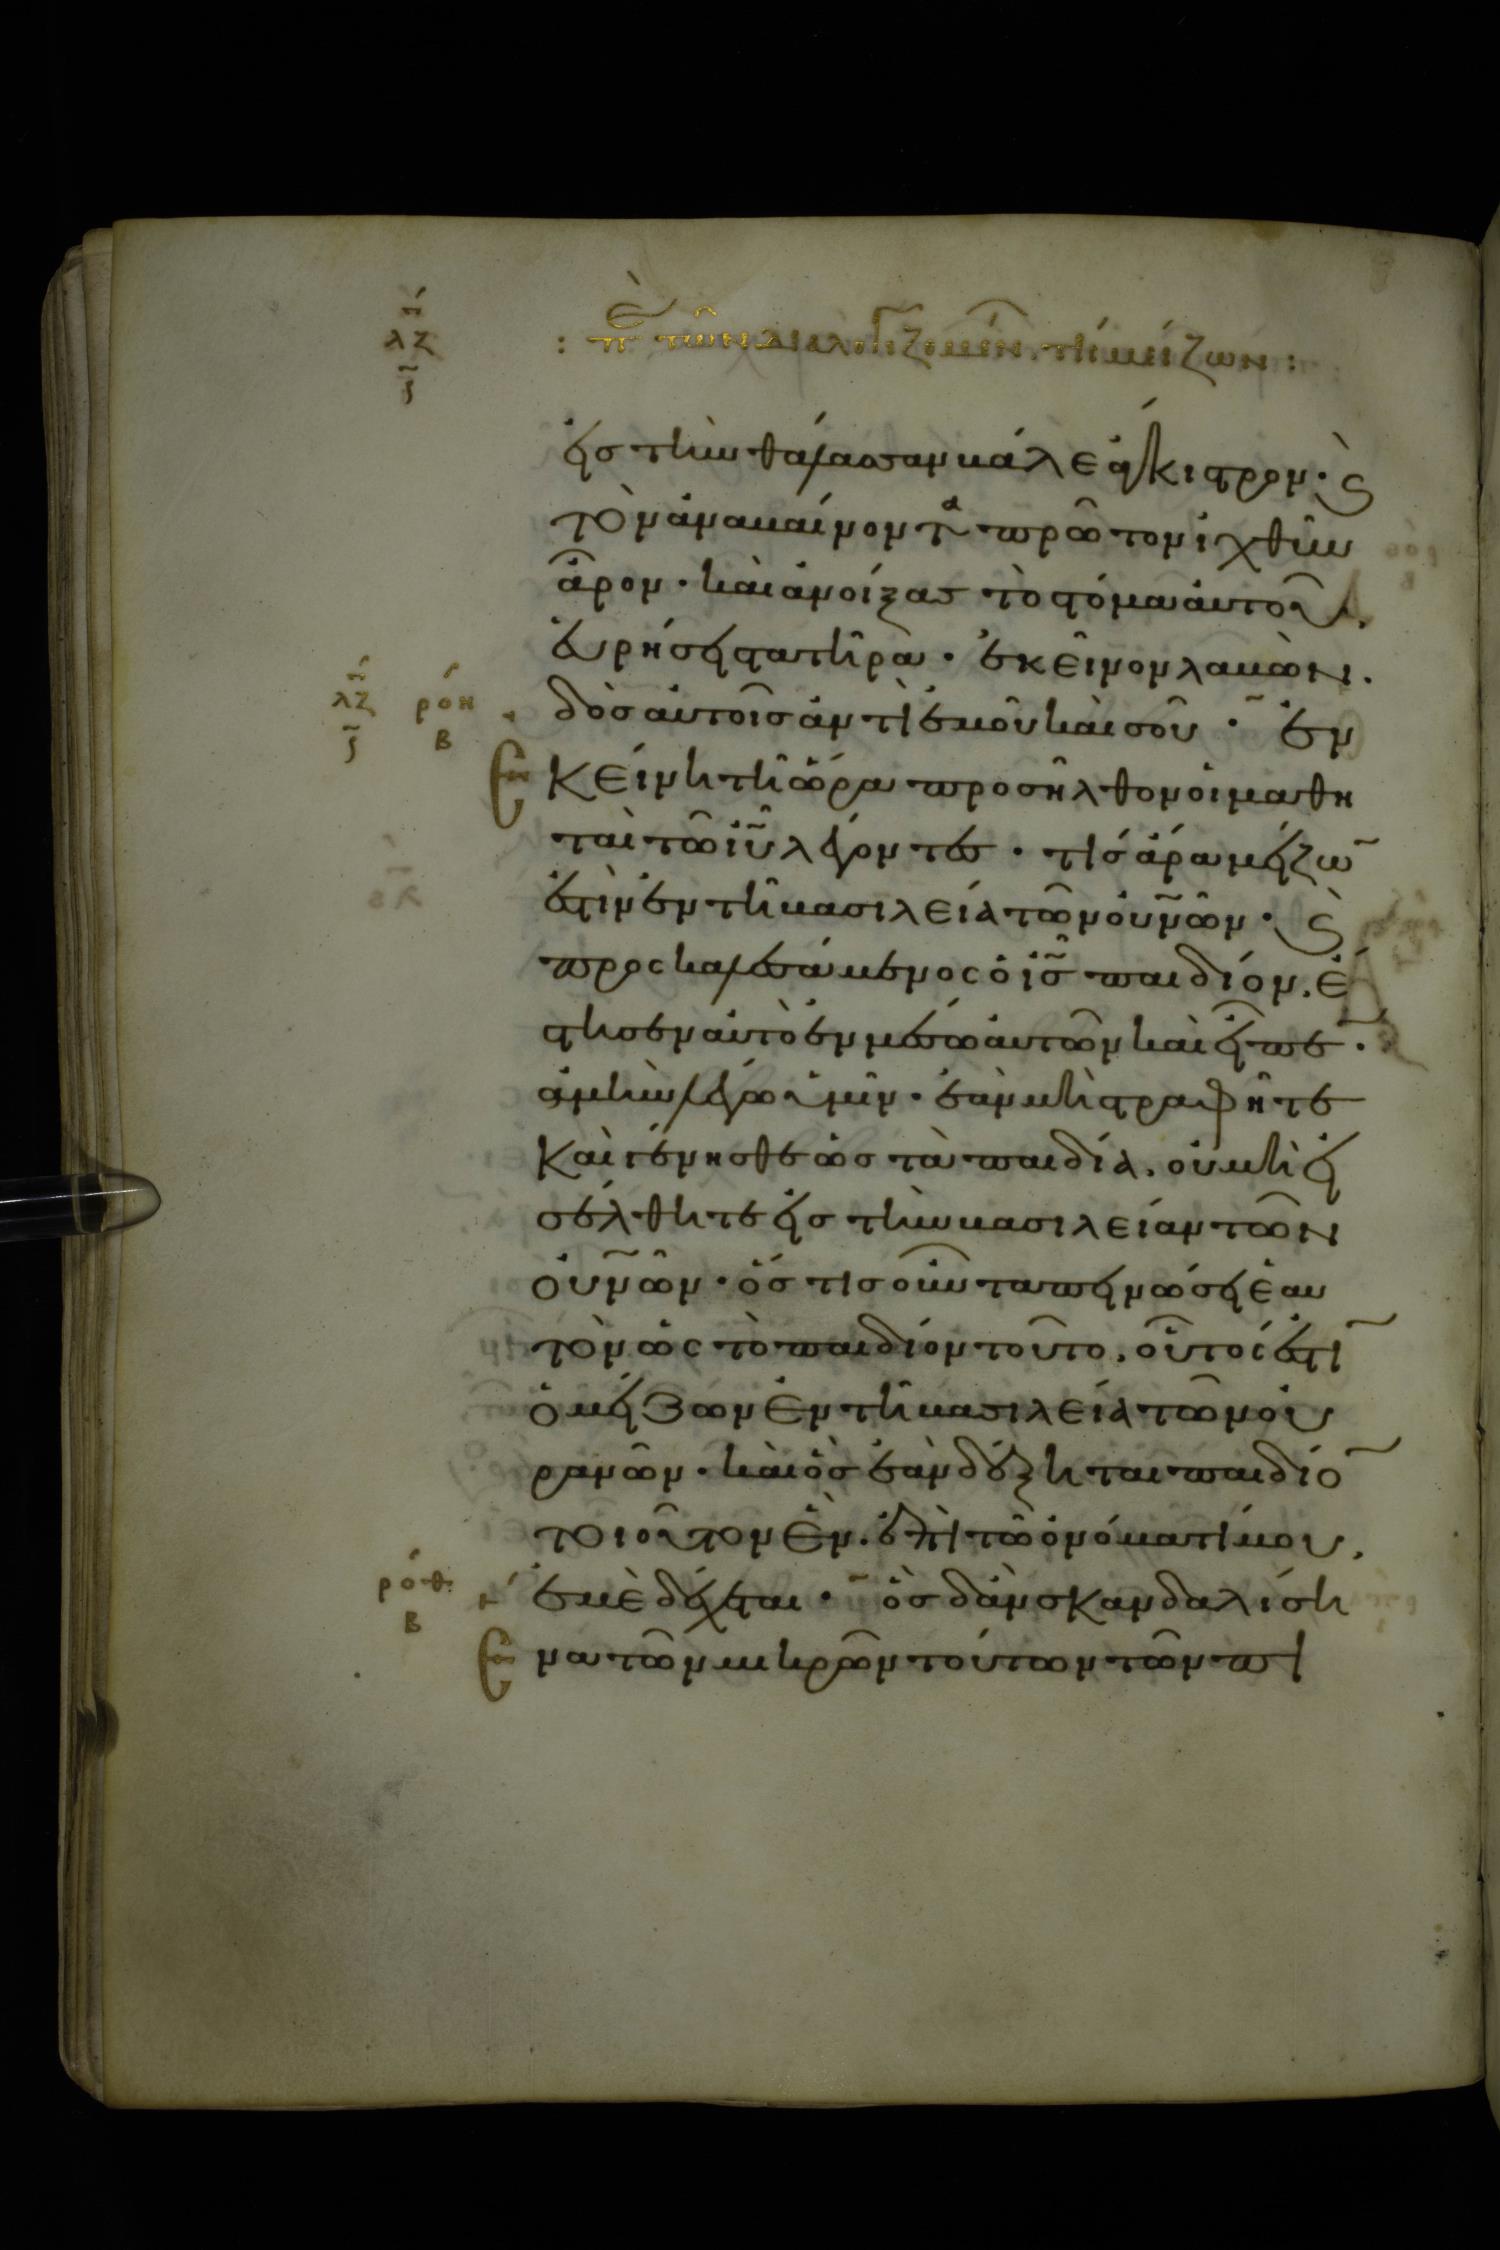 : πε τῶν διαλογιζομέν. τίς μείζων :
εἰς τὴν θάλασσαν βάλε ἄγκιστρον· ϗ
τὸν ἀναβαίνοντα πρῶτον ἰχθὺν
ἆρον· καὶ ἀνοίξας τὸ στόμα αὐτοῦ,
εὑρήσεις στατῆρα· ἐκεῖνον λαβὼν.
δὸς αὐτοῖς ἀντὶ ἐμοῦ καὶ σοῦ· ἐν
λζ
ϛ
ρον
β
Ἐκείνη τῆ ὥρα προσῆλθον οἱ μαθη
ταὶ τῶ ἰῦ λέγοντες· τίς ἄρα μείζω̄
ἐστὶν ἐν τῆ βασιλεία τῶν οὐν̄ῶν· ϗ
προςκαλεσάμενος ὁ ἰς̄ παιδίον, ἔ
στησεν αὐτὸ ἐν μέσω αὐτῶν καὶ εἶπε·
ἀμὴν λέγω ὑμῖν· ἐὰν μὴ στραφῆτε
καὶ γένησθε ὡς τὰ παιδία, οὐ μὴ εἰ
σέλθητε εἰς τὴν βασιλείαν τῶν
οὐν̄ῶν· ὅστις οὖν ταπεινώσει ἑαυ
τὸν ὡς τὸ παιδίον τοῦτο, οὗτός ἐστῑ
ὁ μείζων ἐν τῆ βασιλεία τῶν οὐ
ρανῶν· καὶ ὃς ἐὰν δέξηται παιδίο̄
τοιοῦτον ἓν. ἐπὶ τῶ ὀνόματί μου,
ροθ
β
ἐμὲ δέχεται· ὃς δ' ἂν σκανδαλίση
ἕνα τῶν μικρῶν τούτων τῶν πι